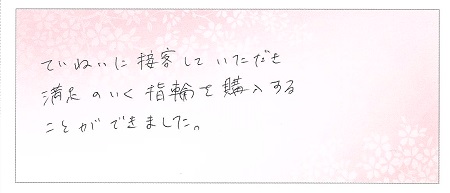 ていねいに接客していただき
満足のいく指輪を購入する
ことができました。